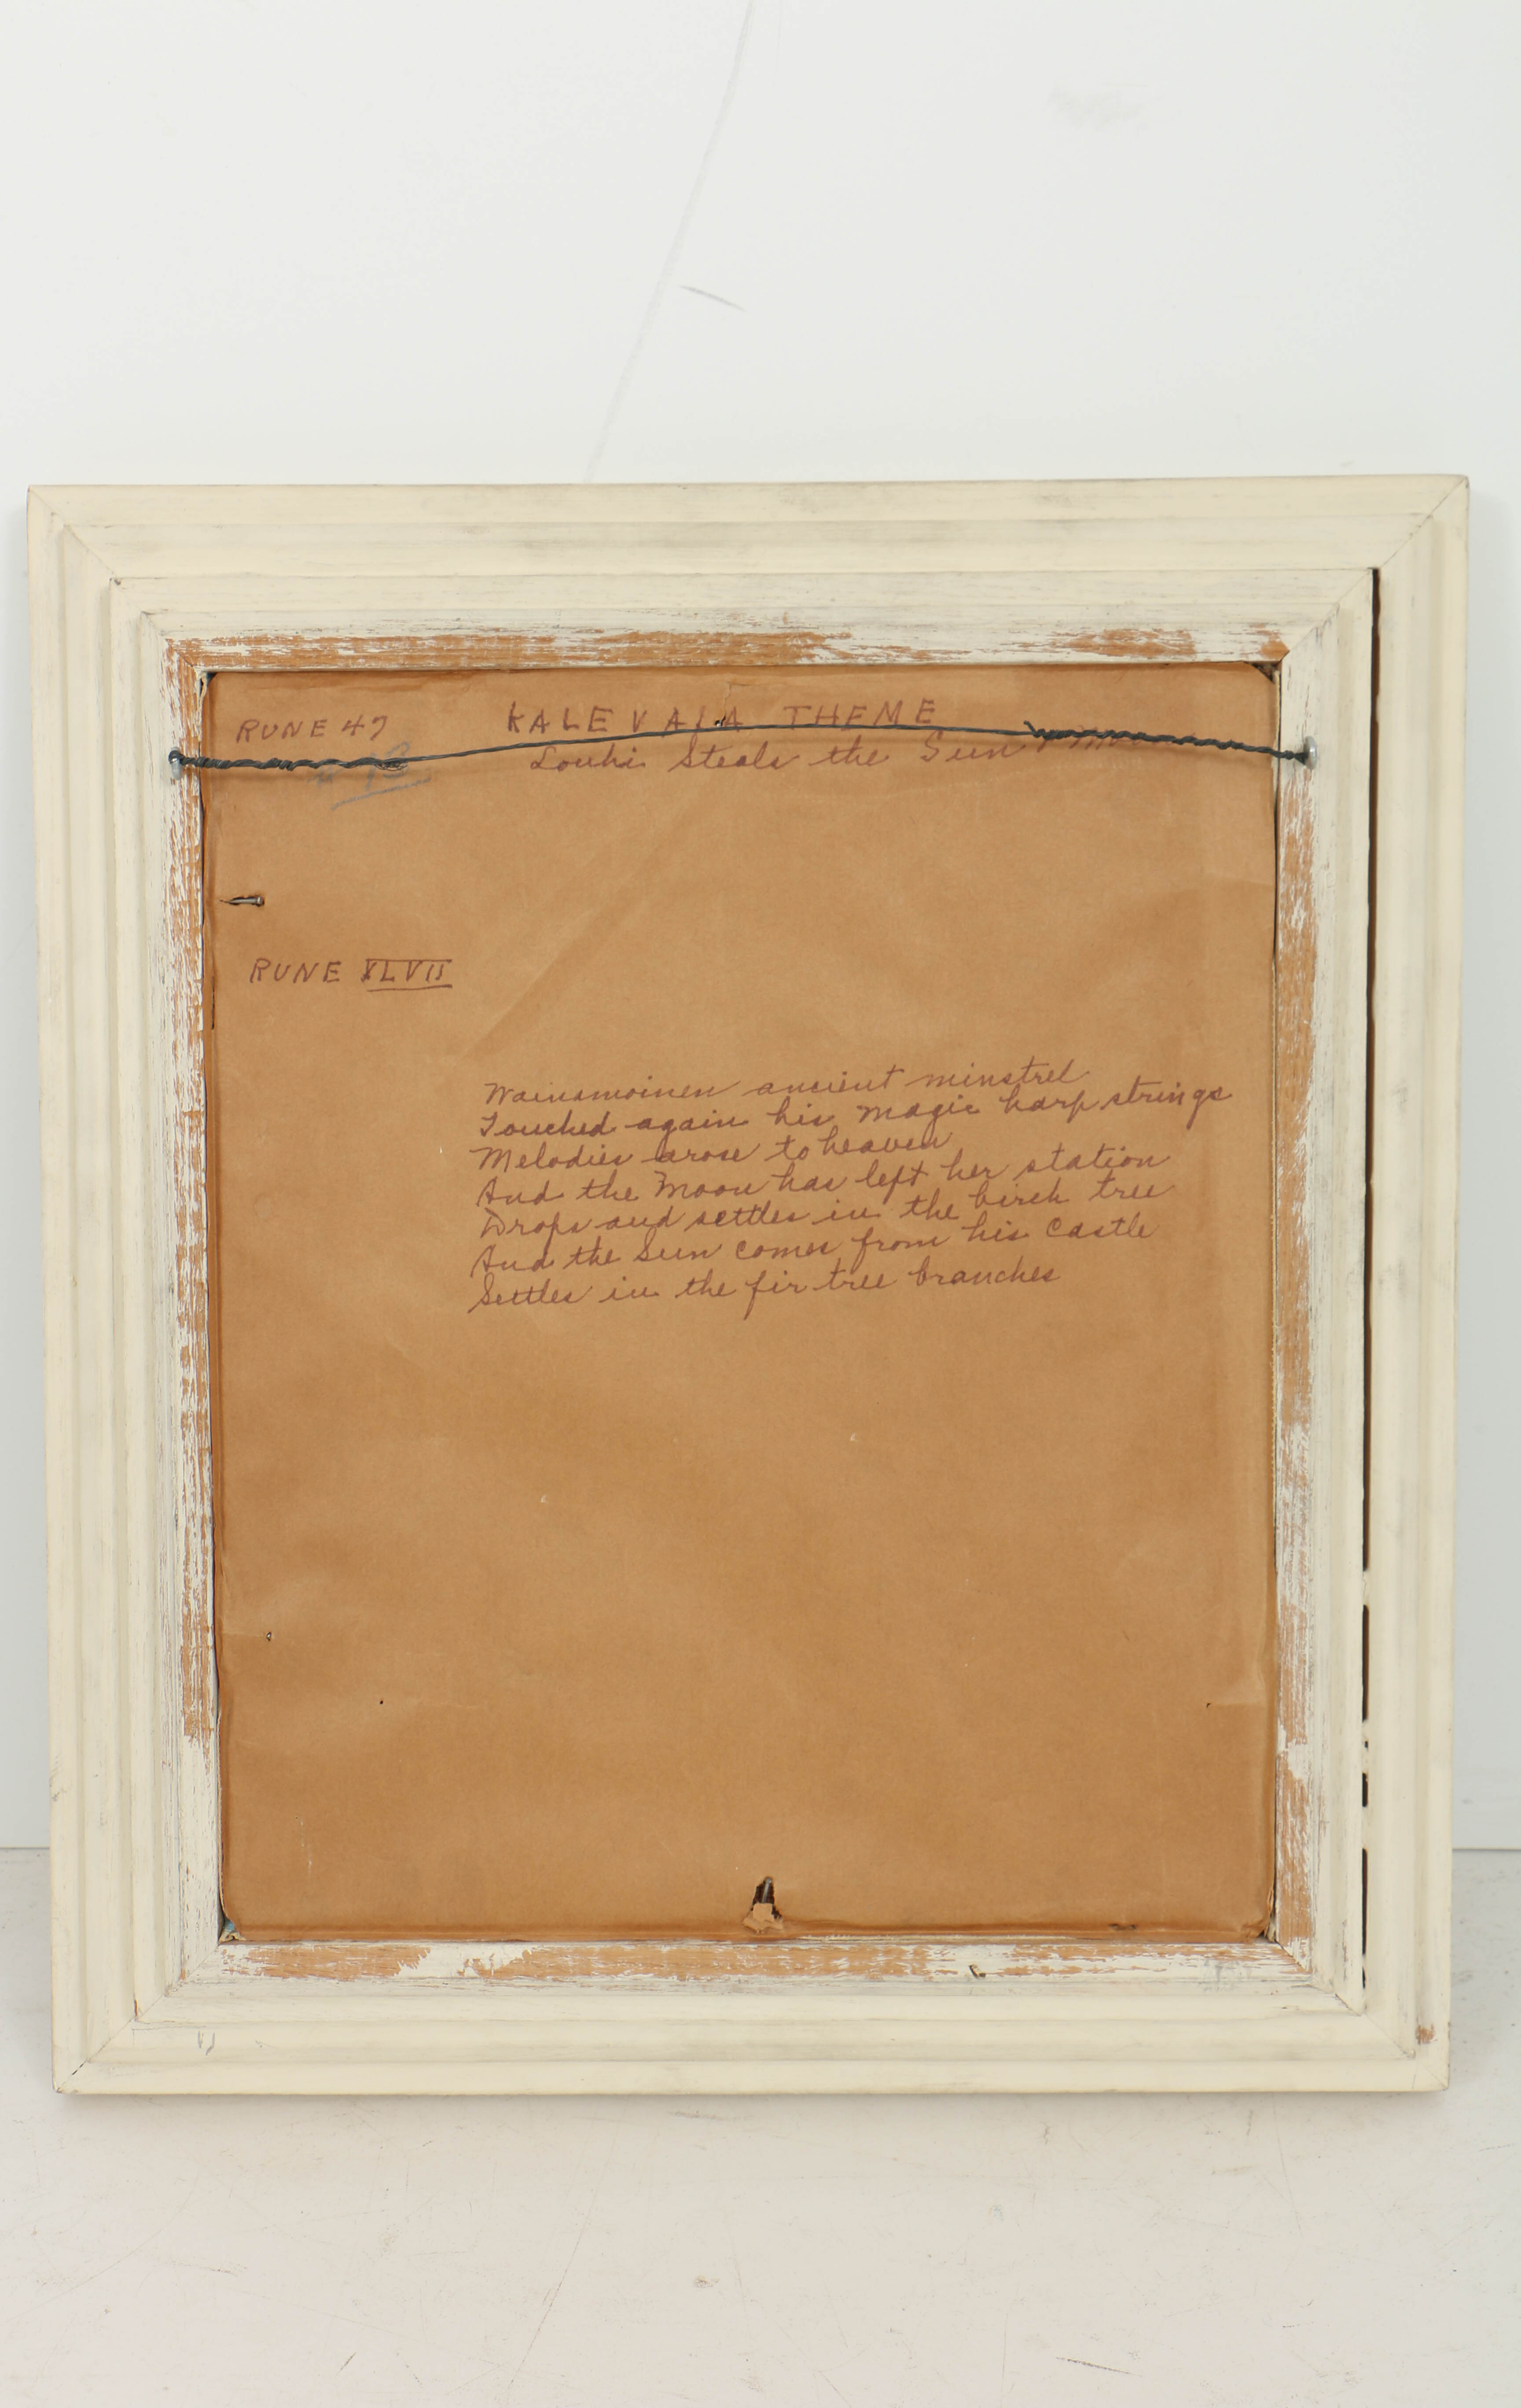 RUNE 47 KALEVALA THEME
Louhi Steals the Sun
# 13
RUNE XLVII
Wainamoinen ancient minstrel
Touched again his magic harp strings
Melodies arose to heaven
And the Moon has left her station
Drops and settles in the birch tree
And the Sun comes from his castle
Settles in the fir tree branches